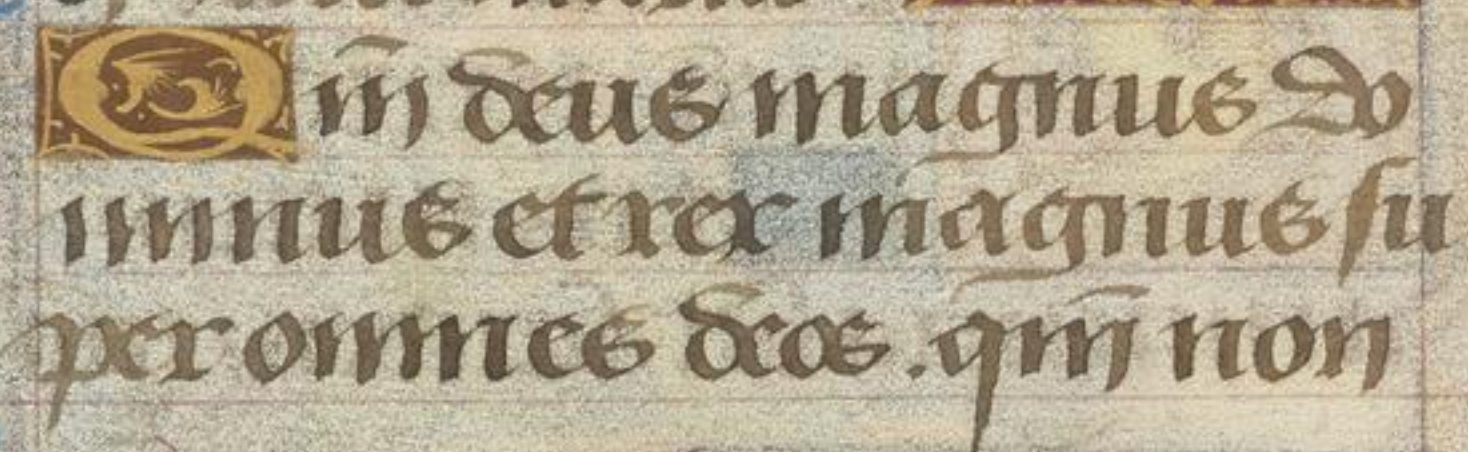 Qm̄ deus magnus do
minus et rex magnus su
per omnes deos . qm̄ non